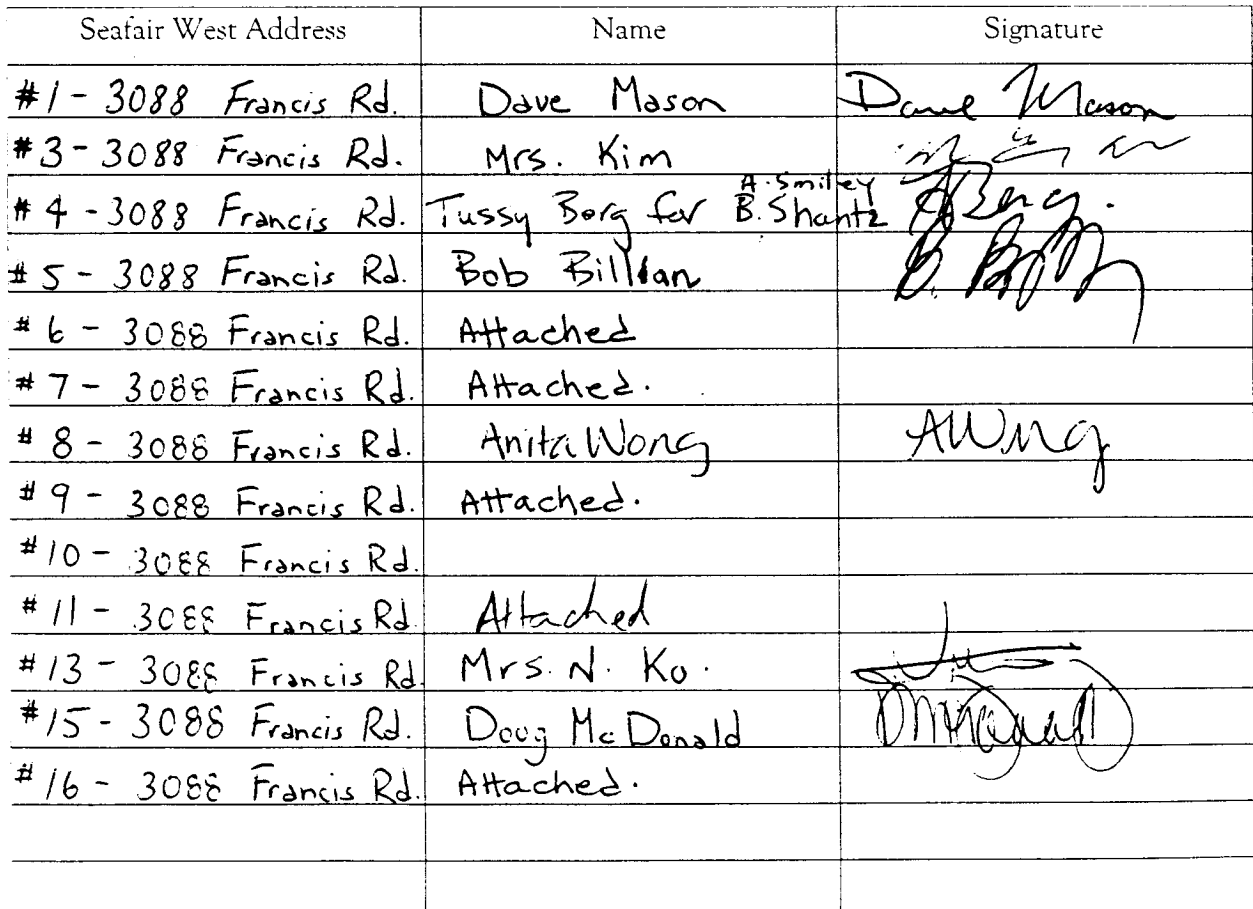 Seafair West Address Name Signature
#1 - 3088 Francis Rd. Dave Mason Dave Mason
#3 - 3088 Francis Rd. Mrs. Kim
A. Smiley
#4 - 3088 Francis Rd. Tussy Borg for B. Shantz ABerg.
#5 - 3088 Francis Rd. Bob Billian B.
#6 - 3088 Francis Rd. Attached
#7 - 3088 Francis Rd. Attached.
#8 - 3088 Francis Rd. Anita Wong AWong
#9 - 3088 Francis Rd. Attached.
#10 - 3088 Francis Rd.
#11 - 3088 Francis Rd Attached
#13 - 3088 Francis Rd Mrs. N. Ko.
#15 - 3088 Francis Rd. Doug McDonald
#16 - 3088 Francis Rd. Attached.